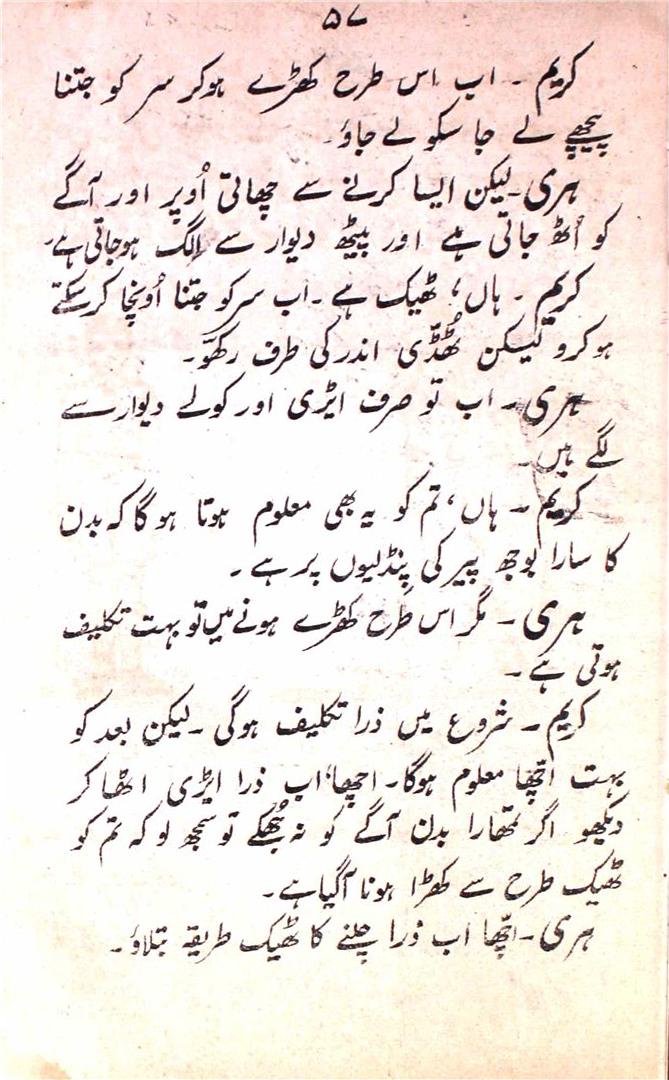 ۵۷
کریم ۔ اب اس طرح کھڑے ہوکر سر کو جتنا
پیچھے لے جا سکو لے جاؤ۔
ہری۔ لیکن ایسا کرنے سے چھاتی اُوپر اور آگے
کو اُٹھ جاتی ہے اور پیٹھ دیوار سے الگ ہوجاتی ہے۔
کریم ۔ ہاں، ٹھیک ہے ۔ اب سر کو جتنا اُونچا کرسکتے
ہو کرو لیکن ٹھُڈّی اندر کی طرف رکھّو۔
ہری ۔ اب تو صرف ایڑی اور کولے دیوار سے
لگے ہیں۔
کریم ۔ ہاں، تم کو یہ بھی معلوم ہوتا ہوگا کہ بدن
کا سارا بوجھ پیر کی پِنڈلیوں پر ہے ۔
ہری ۔ مگر اس طرح کھڑے ہونے میں تو بہت تکلیف
ہوتی ہے ۔
کریم ۔ شروع میں ذرا تکلیف ہوگی ۔ لیکن بعد کو
بہت اچّھا معلوم ہوگا۔ اچھا، اب ذرا ایڑی اٹھا کر
دیکھو اگر تمھارا بدن آگے کو نہ جُھکے تو سمجھ لو کہ تم کو
ٹھیک طرح سے کھڑا ہونا آگیا ہے۔
ہری ۔ اچّھا اب ذرا چلنے کا ٹھیک طریقہ بتلاؤ ۔